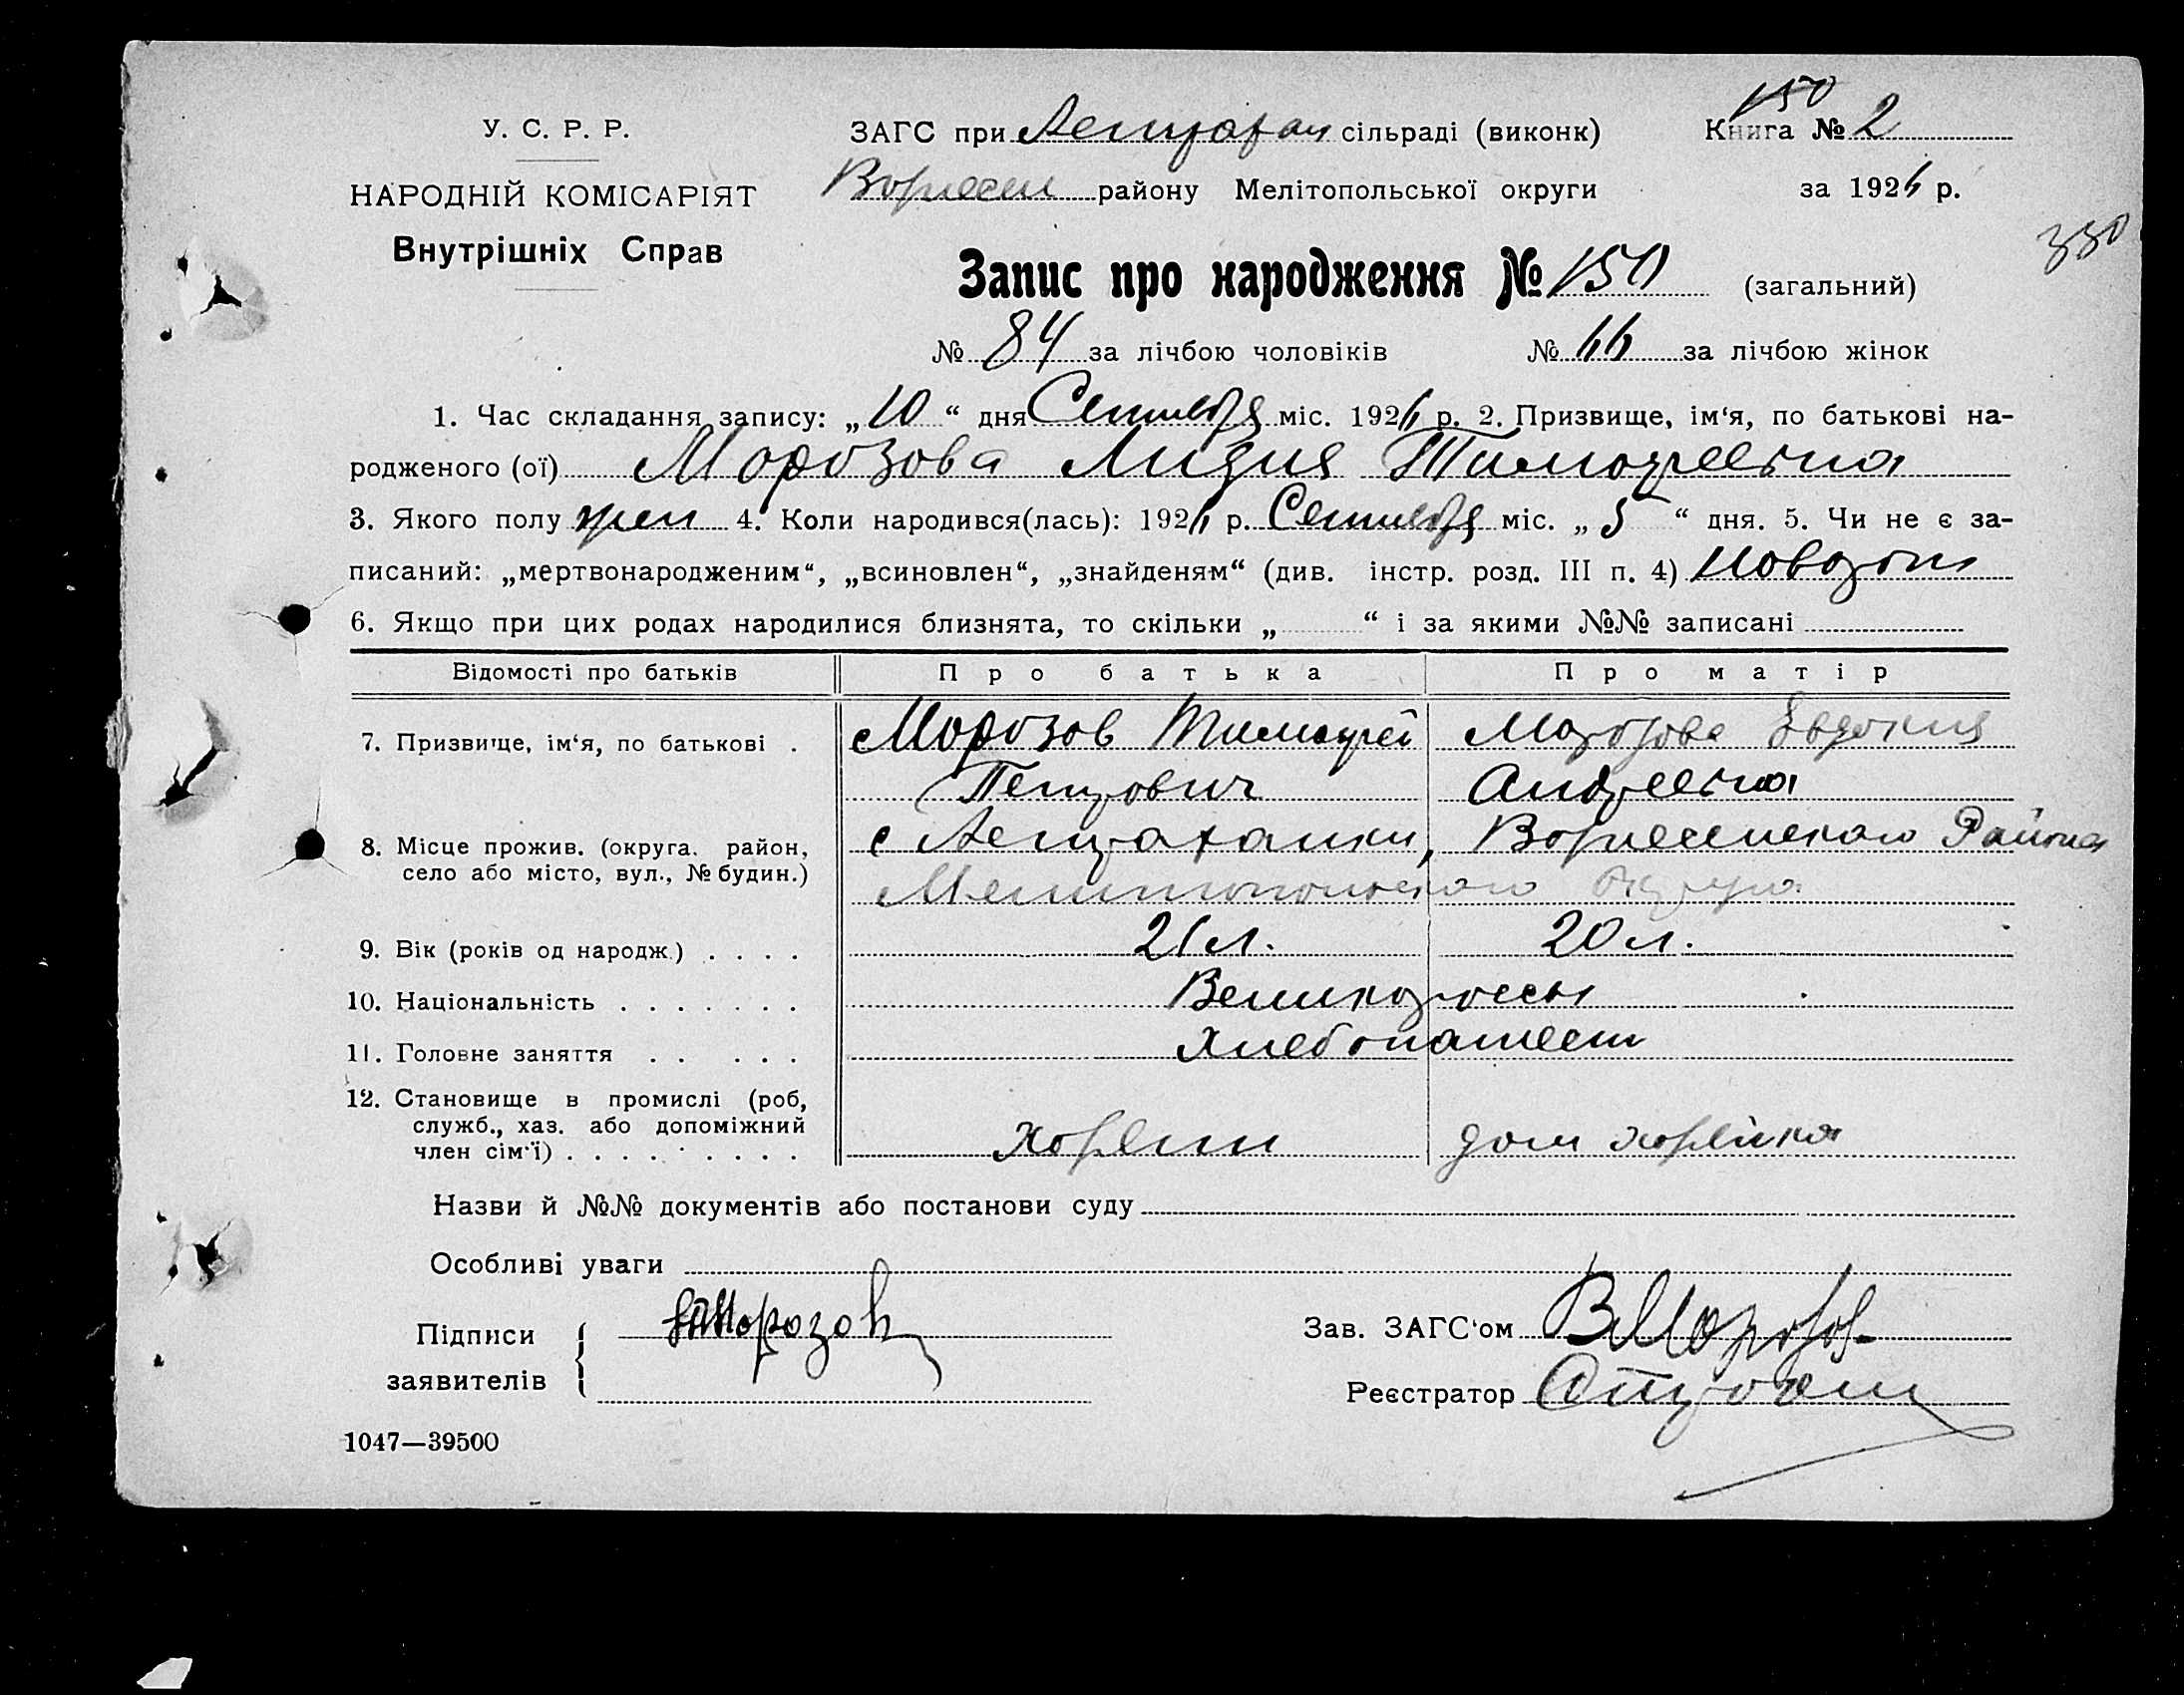 150
У. С. Р. Р.
ЗАГС при Астрахан сільраді (виконк)
Книга № 2
НАРОДНІЙ КОМІСАРІЯТ
Вознесен району Мелітопольської округи
за 1926 р.
Внутрішніх Справ
330
Запис про народження № 150 (загальний)
№ 84 за лічбою чоловіків № 66 за лічбою жінок
1. Час складання запису: „10“ дня Сентября міс. 1926 р. 2. Призвище, ім‘я, по батькові на-
родженого (ої) Морозова Лидия Тимофеевна
3. Якого полу жен 4. Коли народився(лась): 1926 р. Сентября міс. „5“ дня. 5. Чи не є за-
писаний: „мертвонародженим“, „всиновлен“, „знайденям“ (див. інстр. розд. III п. 4)
6. Якщо при цих родах народилися близнята, то скільки „ “ і за якими №№ записані
Відомості про батьків Про батька Про матір
7. Призвище, ім‘я, по батькові . Морозов Тимофей Морозова Евдокия
Петрович Андреевна
8. Місце прожив. (округа, район, с Астраханки, Вознесенского Района
село або місто, вул., № будин.) Мелитопольского Округа
9. Вік (років од народж.) . . . . 21 л. 20 л.
10. Національність . . . . . . . Великороссы
11. Головне заняття . . . . . Хлебопашест
12. Становище в промислі (роб,
служб., хаз. або допоміжний
член сім‘ї) . . . . . . . . . Хозяин дом хозяйка
Назви й №№ документів або постанови суду
Особливі уваги
Підписи Морозов Зав. ЗАГС‘ом В Морозов
заявителів Реєстратор
1047—39500